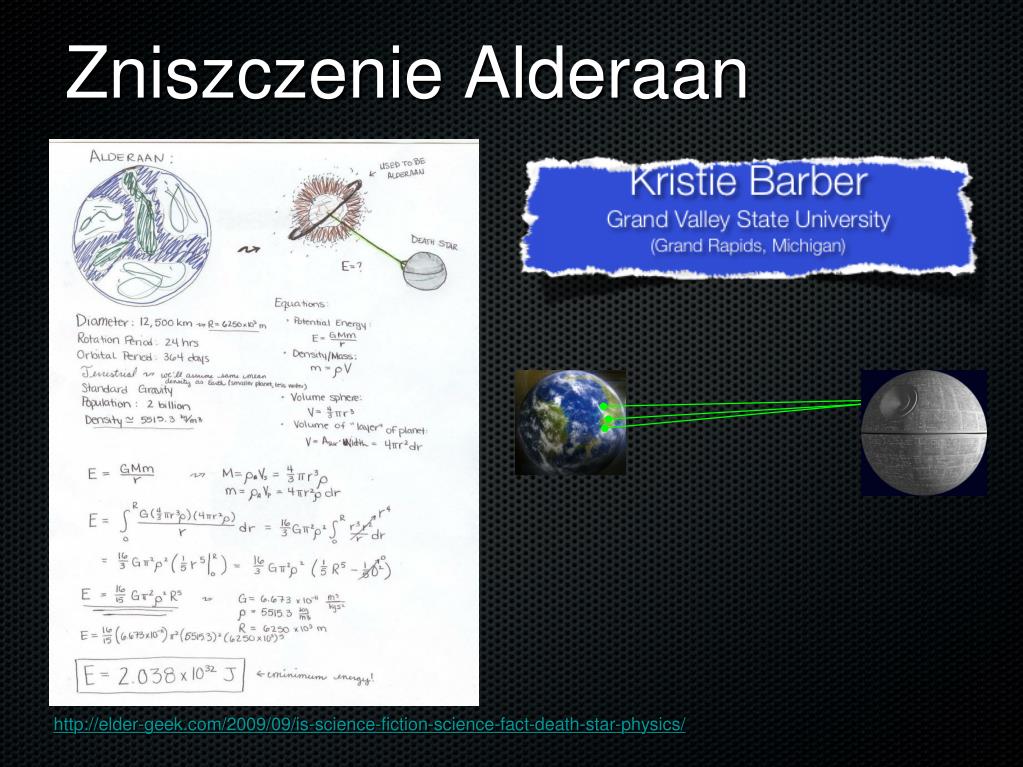 Zniszczenie Alderaan
ALDERAAN:
USED TO BE
ALDERAAN
DEATH STAR
E=?
Diameter: 12,500 km ⇝ R = 6250x10³ m
Rotation Period: 24 hrs
Orbital Period: 364 days
Terrestrial ⇝ we'll assume same mean
density as Earth (smaller planet, less water)
Standard Gravity
Population: 2 billion
Density ≃ 5515.3 kg/m³
Equations:
• Potential Energy:
E = GMm/r
• Density/Mass:
m = ρV
• Volume sphere:
V = 4/3 πr³
• Volume of "layer" of planet:
V = A · Width = 4πr²dr
E = GMm/r ⇝ M = ρV = 4/3 πr³ρ
m = ρV = 4πr²ρdr
E = ∫₀ᴿ G(4/3 πr³ρ)(4πr²ρ)/r dr = 16/3 Gπ²ρ² ∫₀ᴿ r³r²/r dr r⁴
= 16/3 Gπ²ρ² (1/5 r⁵|₀ᴿ) = 16/3 Gπ²ρ² (1/5 R⁵ - 1/5 0⁵) 0
E = 16/15 Gπ²ρ²R⁵ ⇝ G = 6.673 x10⁻¹¹ m³/kgs²
ρ = 5515.3 kg/m³
R = 6250 x10³ m
E = 16/15 (6.673x10⁻¹¹)π²(5515.3)²(6250x10³)⁵
E = 2.038 x 10³² J ← minimum energy!
Kristie Barber
Grand Valley State University
(Grand Rapids, Michigan)
http://elder-geek.com/2009/09/is-science-fiction-science-fact-death-star-physics/